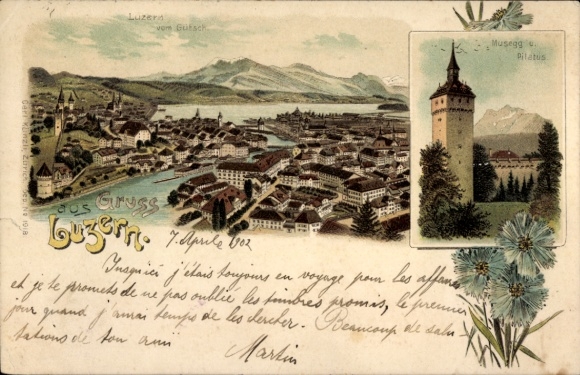 Luzern
vom Gütsch.
Musegg u.
Pilatus
Gruss
aus
Luzern.
7. Aprile 902
Jusqu'ici j'étais toujours en voyage pour les affaires
et je te promets de ne pas oublié les timbres promis, le premier
jour quand j'aurai temps de les chercher. Beaucoup de salu-
tations de ton ami
Martin